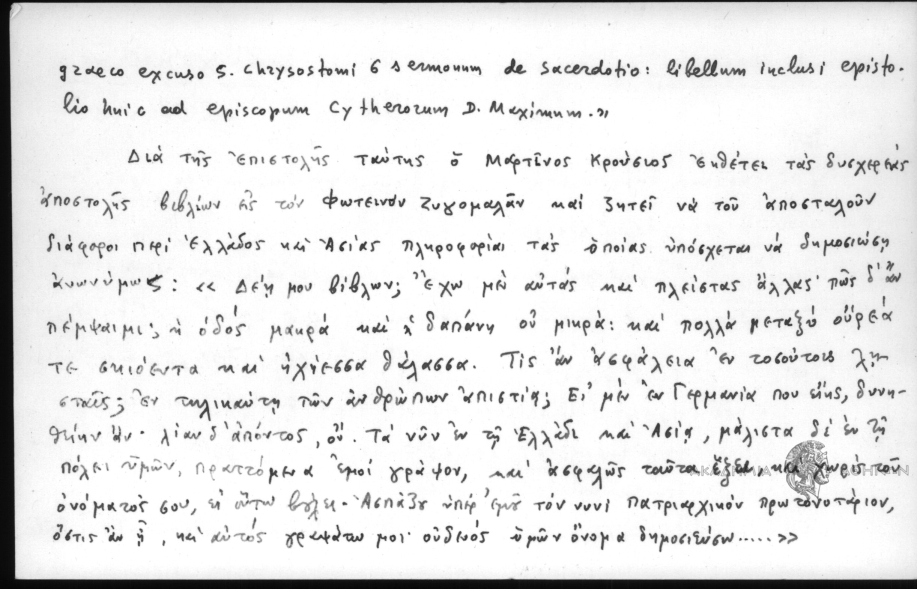 graeco excuso S. Chrysostomi 6 sermonum de sacerdotio: libellum inclusi episto-
lio huic ad episcopum Cytherorum D. Maximum.»
Διὰ τῆς ἐπιστολῆς ταύτης ὁ Μαρτῖνος Κρούσιος ἐκθέτει τὰς δυσχερείας
ἀποστολῆς βιβλίων εἰς τὸν Φωτεινὸν Ζυγομαλᾶν καὶ ζητεῖ νὰ τοῦ ἀποσταλοῦν
διάφοροι περὶ Ἑλλάδος καὶ Ἀσίας πληροφορίαι τὰς ὁποίας ὑπόσχεται νὰ δημοσιεύσῃ
ἀνωνύμως: «Δέῃ μου βίβλων; Ἔχω μὲν αὐτάς καὶ πλείστας ἄλλας· πῶς δ' ἂν
πέμψαιμι; ἡ ὁδός μακρά καὶ ἡ δαπάνη οὐ μικρά: καὶ πολλὰ μεταξύ οὔρεά
τε σκιόεντα καὶ ἠχήεσσα θάλασσα. Τίς ἂν ἀσφάλεια ἐν τοσούτοις λη-
σταῖς; ἐν τηλικαύτῃ τῶν ἀνθρώπων ἀπιστίᾳ; Εἰ μὲν ἐν Γερμανίᾳ που εἴης, δυνη-
θείην ἄν· λίαν δ' ἀπόντος, οὔ. Τὰ νῦν ἐν τῇ Ἑλλάδι καὶ Ἀσίᾳ, μάλιστα δὲ ἐν τῇ
πόλει ὑμῶν, πραττόμενα ἐμοί γράψον, καὶ ἀσφαλῶς ταῦτα ἕξει, καὶ χωρὶς τοῦ
ὀνόματός σου, εἰ οὕτω βούλει. Ἀσπάζου ὑπὲρ ἐμοῦ τόν νυνί πατριαρχικόν πρωτονοτάριον,
ὅστις ἂν ᾖ, καὶ αὐτός γραψάτω μοι· οὐδενός ὑμῶν ὄνομα δημοσιεύσω.....»